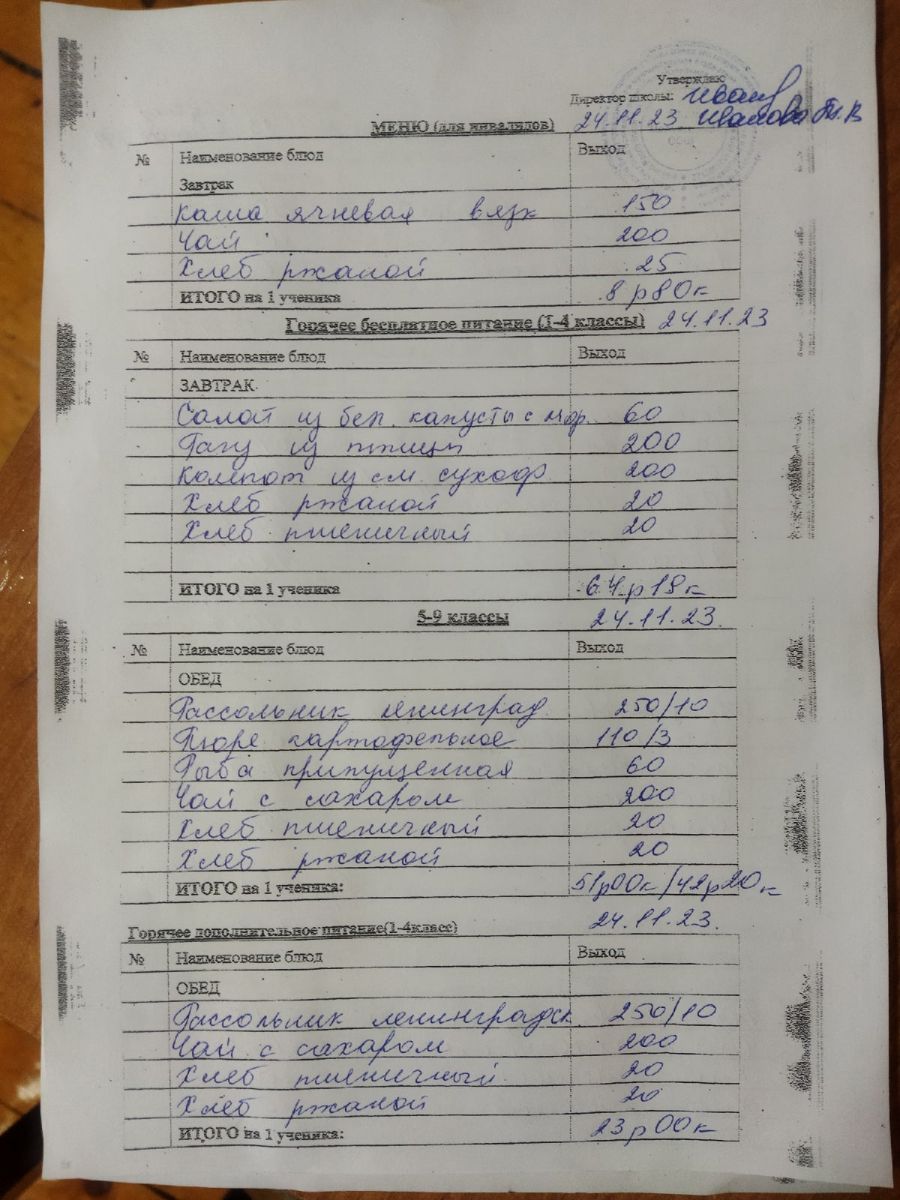 Утверждаю
Директор школы:
МЕНЮ (для инвалидов) 24.11.23 Иванова
№ Наименование блюд Выход
Завтрак
каша ячневая вязк 150
Чай 200
Хлеб ржаной 25
ИТОГО на 1 ученика 8р80к
Горячее бесплатное питание (1-4 классы) 24.11.23
№ Наименование блюд Выход
ЗАВТРАК
Салат из бел. капусты с мор. 60
Рагу из птицы 200
Компот из см. сухофр 200
Хлеб ржаной 20
Хлеб пшеничный 20
ИТОГО на 1 ученика 64р18к
5-9 классы 24.11.23.
№ Наименование блюд Выход
ОБЕД
Рассольник ленинград. 250/10
Пюре картофельное 110/3
Рыба припущенная 60
Чай с сахаром 200
Хлеб пшеничный 20
Хлеб ржаной 20
ИТОГО на 1 ученика: 51р00к/42р20к
Горячее дополнительное питание(1-4класс) 24.11.23.
№ Наименование блюд Выход
ОБЕД
Рассольник ленинградск. 250/10
Чай с сахаром 200
Хлеб пшеничный 20
Хлеб ржаной 20
ИТОГО на 1 ученика: 23р00к